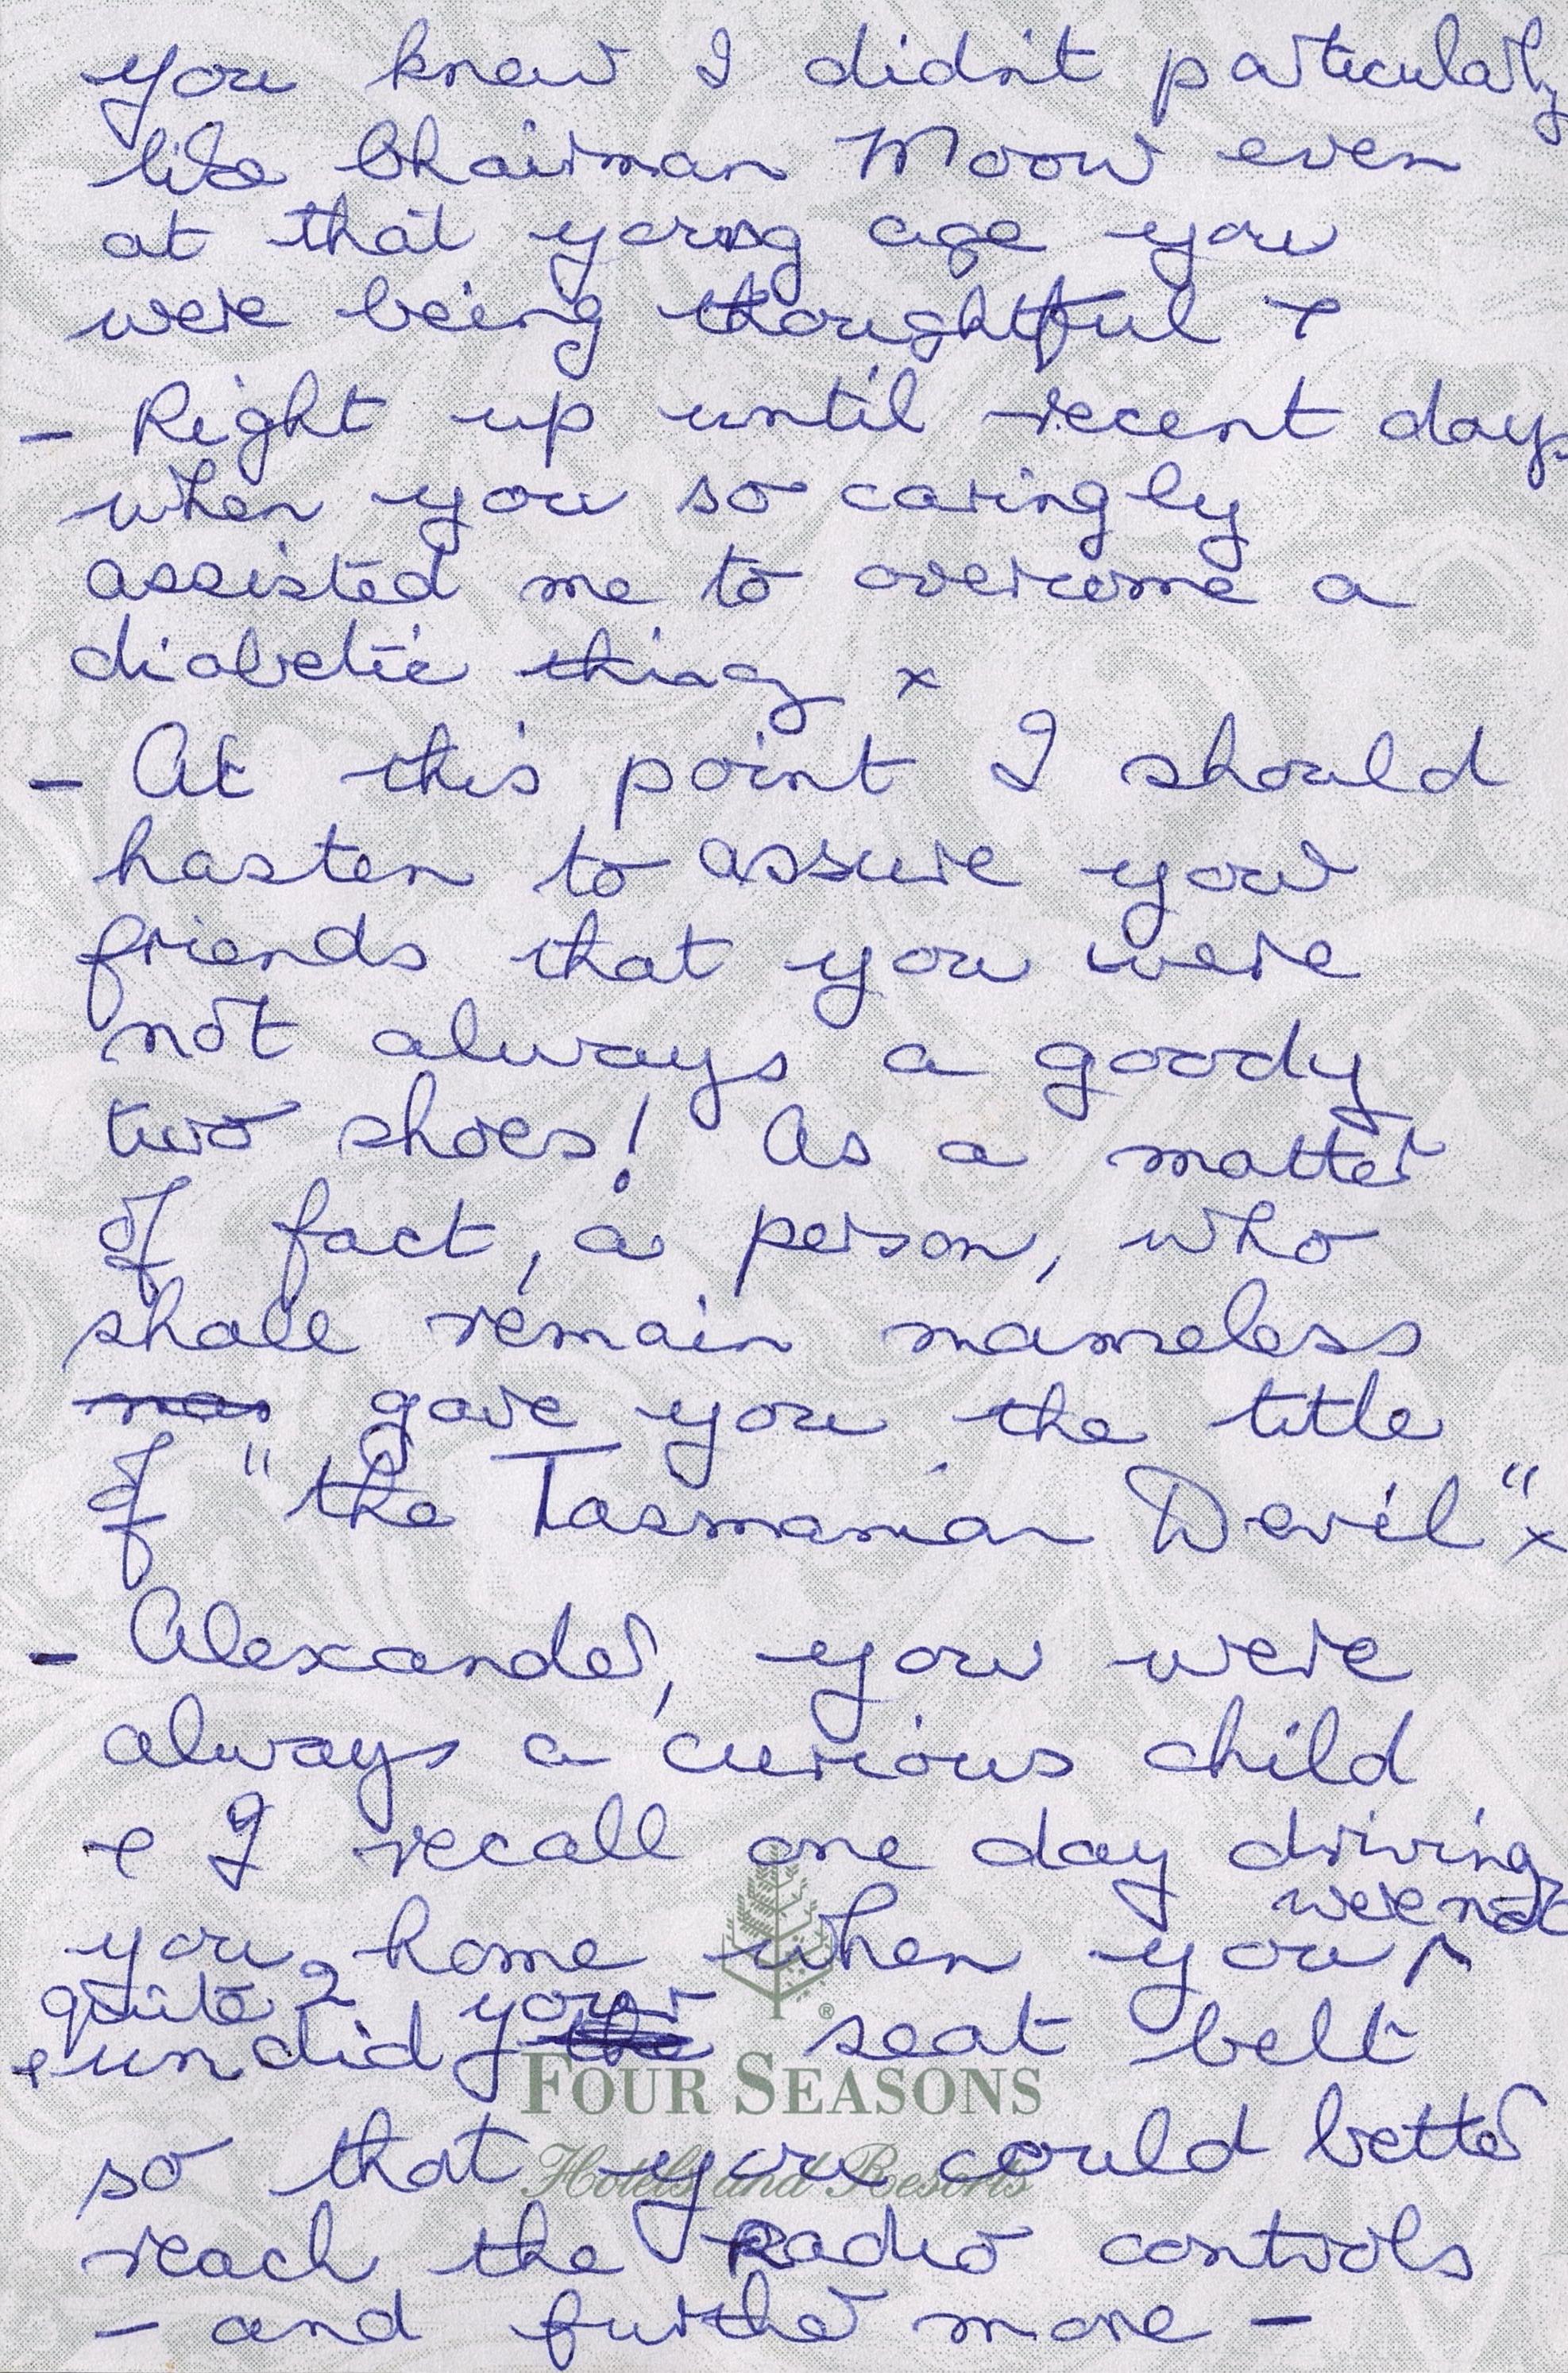 you knew I didn't particularly
like Chairman Moow even
at that young age you
were being thoughtful x
- Right up until recent days
when you so caringly
assisted me to overcome a
diabetic thing x
- At this point I should
hasten to assure your
friends that you were
not always a goody
two shoes! As a matter
of fact, a person, who
shall remain nameless
gave you the title
of "the Tasmanian Devil" x
- Alexander, you were
always a curious child
& I recall one day driving
were not
you home when you ^
quite 2 your
& undid the seat belt
so that you could better
reach the Radio controls
- and further more -
FOUR SEASONS
Hotels and Resorts